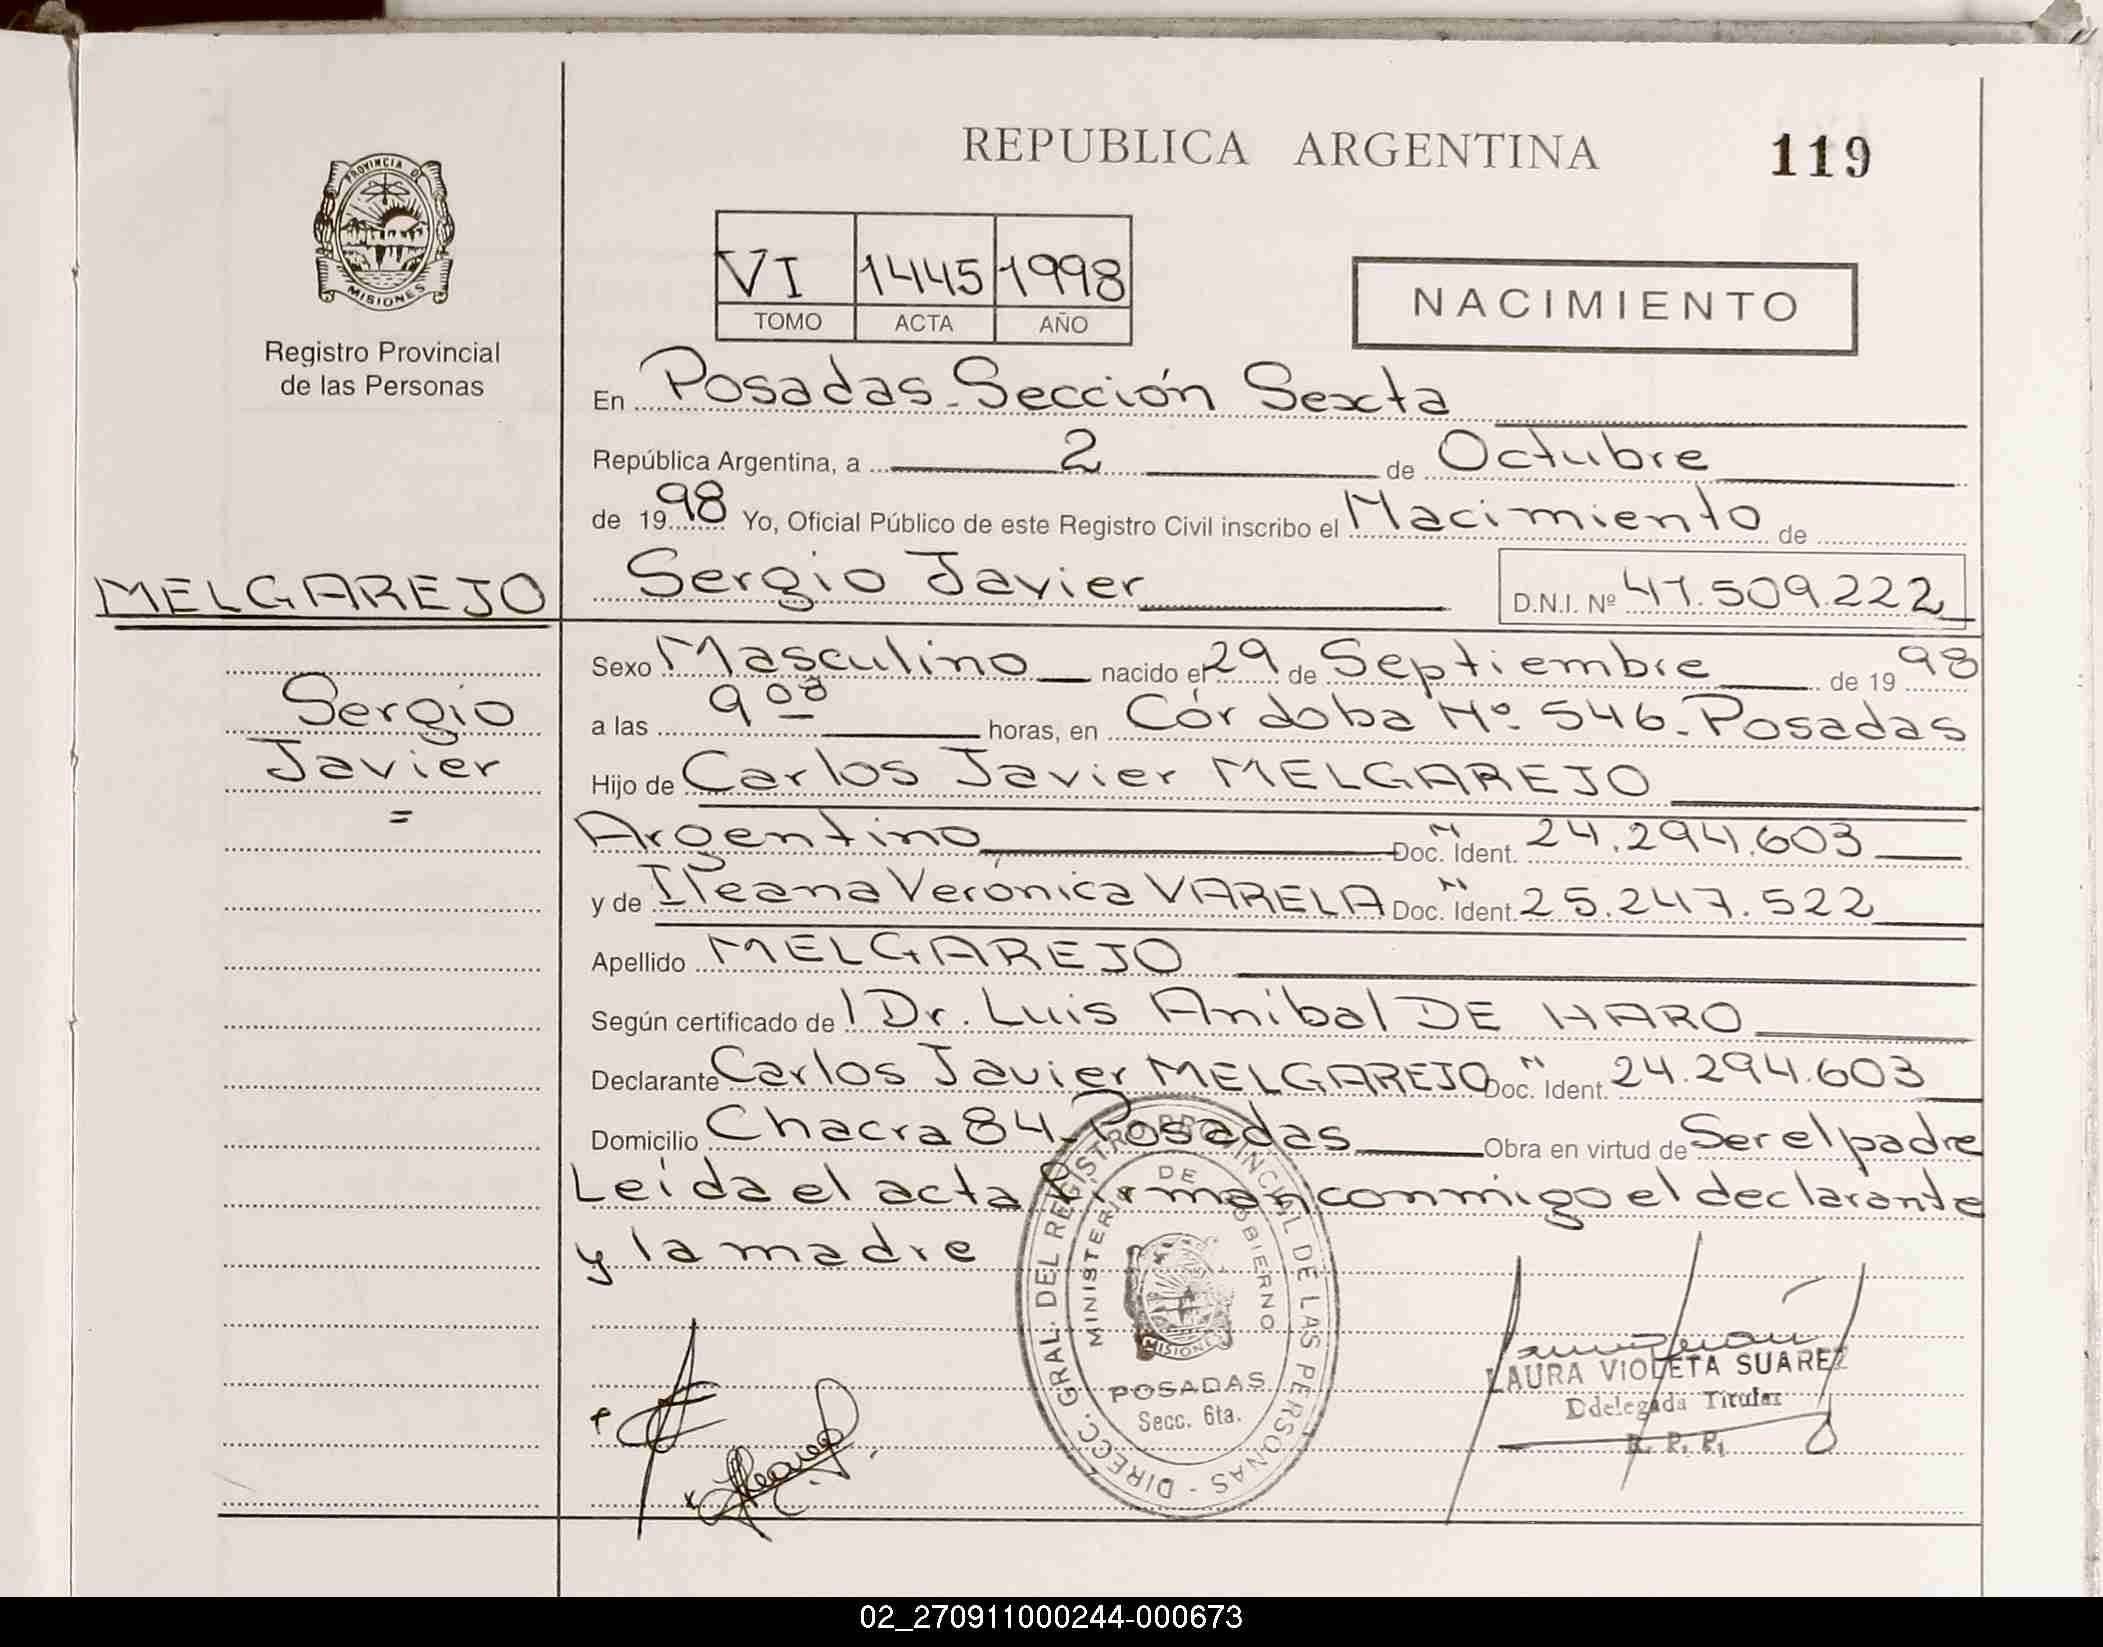 REPUBLICA ARGENTINA
119
PROVINCIA DE
MISIONES
Registro Provincial
de las Personas
VI 1445 1998
TOMO ACTA AÑO
NACIMIENTO
En Posadas-Sección Sexta
República Argentina, a 2 de Octubre
de 1998 Yo, Oficial Público de este Registro Civil inscribo el Nacimiento de
MELGAREJO
Sergio Javier D.N.I. Nº 41.509.222
Sergio
Javier
=
Sexo Masculino nacido el 29 de Septiembre de 1998
a las 9 00 horas, en Córdoba Nº 546-Posadas
Hijo de Carlos Javier MELGAREJO
Argentino Doc. Ident. N 24.294.603
y de Ileana Verónica VARELA Doc. Ident. N 25.247.522
Apellido MELGAREJO
Según certificado del Dr. Luis Anibal DE HARO
Declarante Carlos Javier MELGAREJO Doc. Ident. N 24.294.603
Domicilio Chacra 84-Posadas Obra en virtud de Ser el padre
Leída el acta firman conmigo el declarante
y la madre
DIRECC. GRAL. DEL REGISTRO PROVINCIAL DE LAS PERSONAS -
MINISTERIO DE GOBIERNO
MISIONES
POSADAS
Secc. 6ta.
LAURA VIOLETA SUAREZ
Ddelegada Titular
R. P. P.
02_270911000244-000673